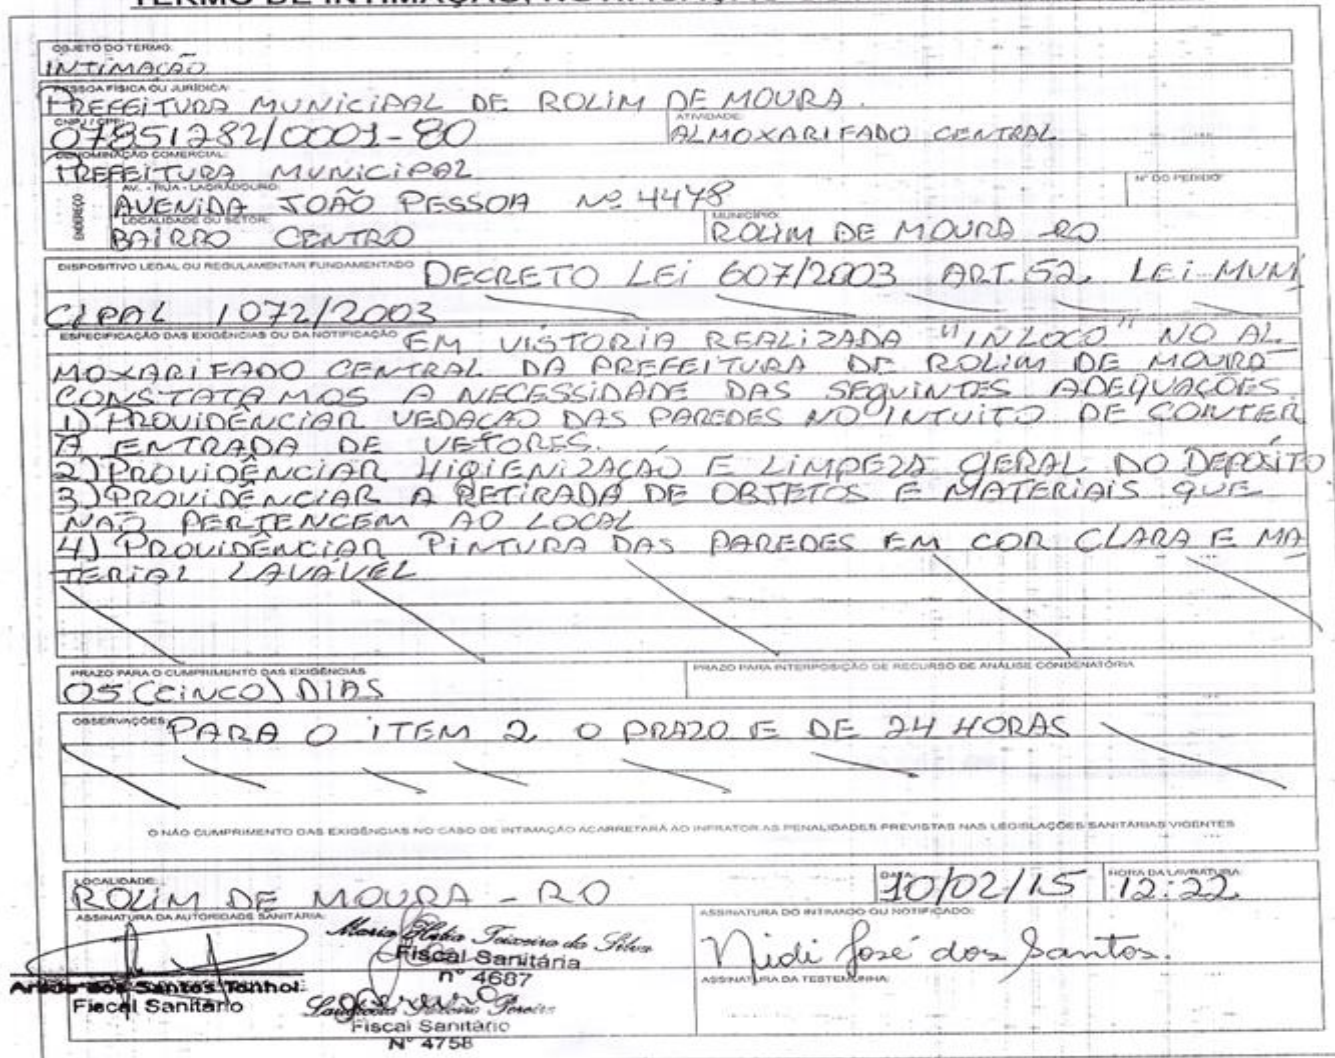 TERMO DE INTIMAÇÃO/NOTIFICAÇÃO
OBJETO DO TERMO:
INTIMAÇÃO
PESSOA FÍSICA OU JURÍDICA:
PREFEITURA MUNICIPAL DE ROLIM DE MOURA.
CNPJ / CPF:
ATIVIDADE:
07851282/0001-80
ALMOXARIFADO CENTRAL
DENOMINAÇÃO COMERCIAL:
PREFEITURA MUNICIPAL
ENDEREÇO
AV. - RUA - LAGRADOURO:
Nº DO PEDIDO:
AVENIDA JOÃO PESSOA Nº 4478
LOCALIDADE OU SETOR:
MUNICÍPIO:
BAIRRO CENTRO
ROLIM DE MOURA RO
DISPOSITIVO LEGAL OU REGULAMENTAR FUNDAMENTADO DECRETO LEI 607/2003 ART. 52, LEI MUNI
CIPAL 1072/2003
ESPECIFICAÇÃO DAS EXIGÊNCIAS OU DA NOTIFICAÇÃO EM VISTORIA REALIZADA "INLOCO" NO AL
MOXARIFADO CENTRAL DA PREFEITURA DE ROLIM DE MOURA
CONSTATAMOS A NECESSIDADE DAS SEGUINTES ADEQUAÇÕES
1) PROVIDÊNCIAR VEDAÇÃO DAS PAREDES NO INTUITO DE CONTER
A ENTRADA DE VETORES.
2) PROVIDÊNCIAR HIGIENIZAÇÃO E LIMPEZA GERAL DO DEPÓSITO
3) PROVIDÊNCIAR A RETIRADA DE OBJETOS E MATERIAIS QUE
NÃO PERTENCEM AO LOCAL
4) PROVIDÊNCIAR PINTURA DAS PAREDES EM COR CLARA E MA
TERIAL LAVAVEL
PRAZO PARA O CUMPRIMENTO DAS EXIGÊNCIAS
PRAZO PARA INTERPOSIÇÃO DE RECURSO DE ANÁLISE CONDENATÓRIA
05 (CINCO) DIAS
OBSERVAÇÕES: PARA O ITEM 2 O PRAZO E DE 24 HORAS
O NÃO CUMPRIMENTO DAS EXIGÊNCIAS NO CASO DE INTIMAÇÃO ACARRETARÁ AO INFRATOR AS PENALIDADES PREVISTAS NAS LEGISLAÇÕES SANITÁRIAS VIGENTES
LOCALIDADE:
DATA:
HORA DA LAVRATURA:
ROLIM DE MOURA - RO
10/02/15
12:22
ASSINATURA DA AUTORIDADE SANITÁRIA:
ASSINATURA DO INTIMADO OU NOTIFICADO:
Maria Teixeira da Silva
Fiscal Sanitária
n° 4687
Nidi José dos Santos.
dos Santos Tonhol
Fiscal Sanitário
Pereira
Fiscal Sanitário
N° 4758
ASSINATURA DA TESTEMUNHA: